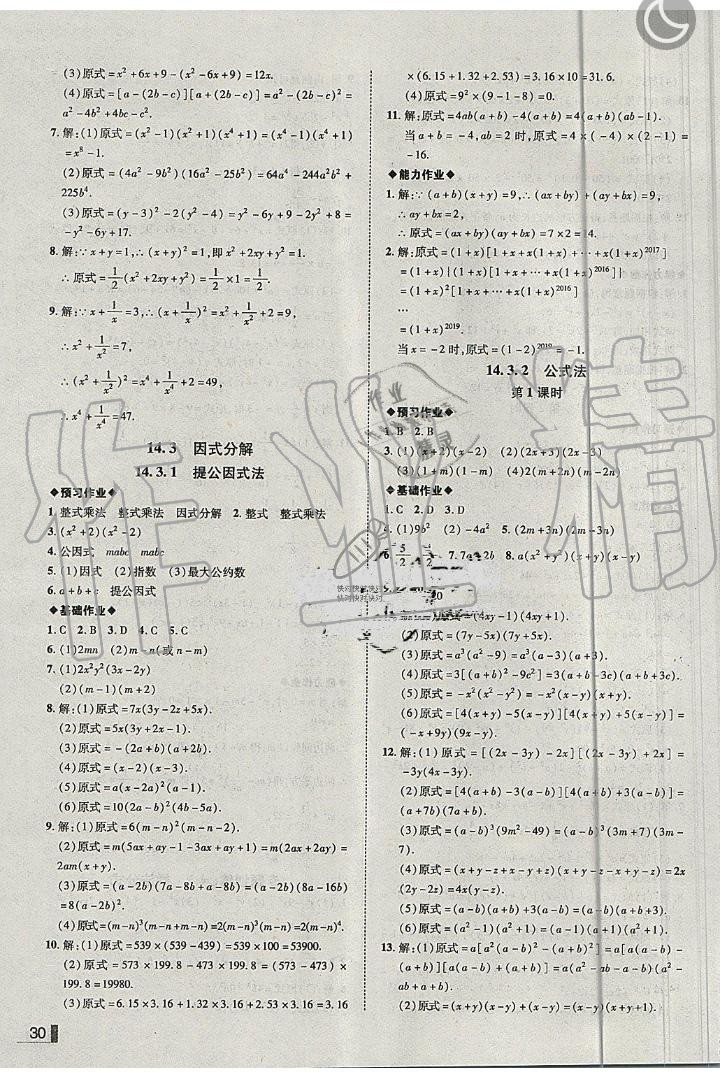 (3)原式=x²+6x+9-(x²-6x+9)=12x.
(4)原式=[a-(2b-c)][a+(2b-c)]=a²-(2b-c)²=
a²-4b²+4bc-c².
7. 解:(1)原式=(x²-1)(x²+1)(x⁴+1)=(x⁴-1)(x⁴+1)
=x⁸-1.
(2)原式=(4a²-9b²)(16a²-25b²)=64a⁴-244a²b²+
225b⁴.
(3)原式=(y-3)²-2(y²-4)=y²-6y+9-2y²+8=
-y²-6y+17.
8. 解:∵x+y=1,∴(x+y)²=1,即x²+2xy+y²=1.
∴原式=1/2(x²+2xy+y²)=1/2×1=1/2.
9. 解:∵x+1/x=3,∴(x+1/x)²=x²+1/x²+2=9,
∴x²+1/x²=7,
∴(x²+1/x²)²=x⁴+1/x⁴+2=49,
∴x⁴+1/x⁴=47.
14.3 因式分解
14.3.1 提公因式法
◆预习作业◆
1. 整式乘法 整式乘法 因式分解 2. 整式 整式乘法
3. (x²+2)(x²-2)
4. 公因式 mabc mabc
5. (1)因式 (2)指数 (3)最大公约数
6. a+b+c 提公因式
◆基础作业◆
1. C 2. B 3. D 4. C 5. C
6. (1)2mn (2)m(或n-m)
7. (1)2x²y²(3x-2y)
(2)(m-1)(m+2)
8. 解:(1)原式=7x(3y-2z+5x).
(2)原式=5x(3y+2x-1).
(3)原式=-(2a+b)(a+2b).
(4)原式=(x-2)(x-3).
(5)原式=a(x-2a)²(x-a).
(6)原式=10(2a-b)²(4b-5a).
9. 解:(1)原式=6(m-n)²(m-n-2).
(2)原式=m(5ax+ay-1-3ax+ay+1)=m(2ax+2ay)=
2am(x+y).
(3)原式=(a-2b)(7a-8b+a-8b)=(a-2b)(8a-16b)
=8(a-2b)².
(4)原式=(m-n)³(m+n+m-n)=2(m-n)³·m=2m(m-n)³.
10. 解:(1)原式=539×(539-439)=539×100=53900.
(2)原式=573×199.8-473×199.8=(573-473)×
199.8=19980.
(3)原式=6.15×3.16+1.32×3.16+2.53×3.16=3.16
×(6.15+1.32+2.53)=3.16×10=31.6.
(4)原式=9²×(9-1-8)=0.
11. 解:原式=4ab(a+b)-4(a+b)=4(a+b)(ab-1).
当a+b=-4,ab=2时,原式=4×(-4)×(2-1)=
-16.
◆能力作业◆
1. 解:∵(a+b)(x+y)=9,∴(ax+by)+(ay+bx)=9,
∴ay+bx=2,
∴原式=(ax+by)(ay+bx)=7×2=14.
2. 解:原式=(1+x)[1+x+x(1+x)+…+x(1+x)²⁰¹⁷]
=(1+x)(1+x)[1+x+…+x(1+x)²⁰¹⁶]
=(1+x)²[1+x+…+x(1+x)²⁰¹⁶]
=…
=(1+x)²⁰¹⁹.
当x=-2时,原式=(1-2)²⁰¹⁹=-1.
14.3.2 公式法
第1课时
◆预习作业◆
1. B 2. B
3. (1)(x+2)(x-2) (2)(2x+3)(2x-3)
(3)(1+m)(1-m) (4)2(x+1)(x-1)
◆基础作业◆
1. C 2. D 3. D
4. (1)9b² (2)-4a² 5. (2m+3n)(2m-3n)
6. 5/2 1/2 7. 7a 2b 8. a(x²+y²)(x+y)(x-y)
快对快对快对
快对快对快对
(4xy-1)(4xy+1).
(2)原式=(7y-5x)(7y+5x).
(3)原式=a³(a²-9)=a³(a-3)(a+3).
(4)原式=3[(a+b)²-9c²]=3(a+b+3c)(a+b-3c).
(5)原式=-x²(x²-y²)=-x²(x+y)(x-y).
(6)原式=[4(x+y)-5(x-y)][4(x+y)+5(x-y)]=
(-x+9y)(9x-y).
12. 解:(1)原式=[(2x-3y)-2x][(2x-3y)+2x]=
-3y(4x-3y).
(2)原式=[4(a+b)-3(a-b)][4(a+b)+3(a-b)]=
(a+7b)(7a+b).
(3)原式=(a-b)³(9m²-49)=(a-b)³(3m+7)(3m-7).
(4)原式=(x+y-z+x-y+z)(x+y-z-x+y-z)=2x
(2y-2z)=4x(y-z).
(5)原式=(a+b)(a-b)+3(a-b)=(a-b)(a+b+3).
(6)原式=(a²-1)(a²+1)=(a-1)(a+1)(a²+1).
13. 解:(1)原式=a[a²(a-b)²-(a+b)²]=a[a(a-b)-
(a+b)][a(a-b)+(a+b)]=a(a²-ab-a-b)(a²-
ab+a+b).
(2)原式=(x+y)(x-y)+(x-y)=(x-y)(x+y+1).
30